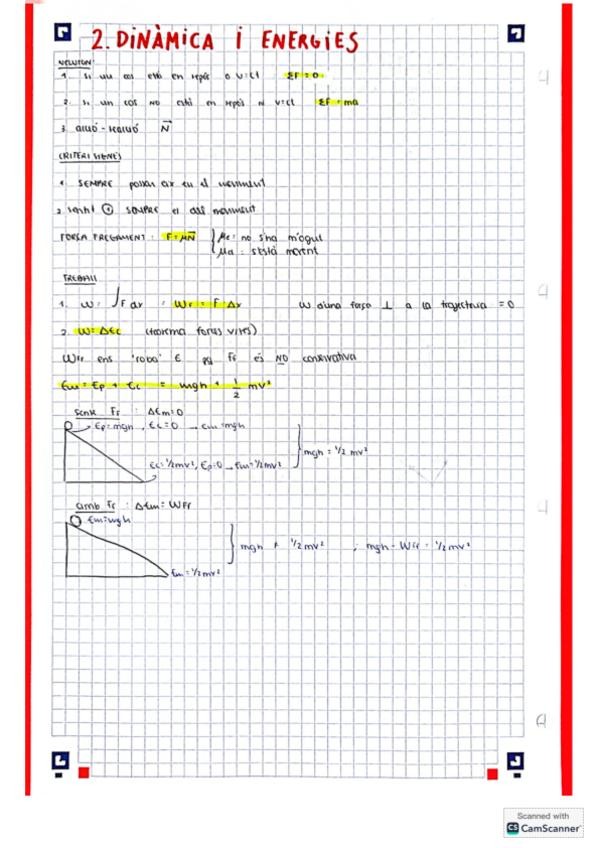 2. DINÀMICA i ENERGIES
NEWTON:
1. Si un cos està en repòs o v=ct : ΣF=0
2. Si un cos NO està en repòs ni v=ct ΣF=ma
3. acció-reacció N⃗
CRITERI SIGNES
1. SEMPRE posar eix en el moviment
2. sentit ⊕ SEMPRE el del moviment
FORÇA FREGAMENT : F=μN⃗ { μe: no s'ha mogut
μd : s'està movent
TREBALL
1. W= ∫F dx ; WF = F·Δx W d'una força ⊥ a la trajectòria =0
2. W=ΔEc (teorema forces vives)
WFr ens 'roba' E pq Fr és NO conservativa
Em = Ep + Ec = mgh + 1/2 mv²
Sense Fr : ΔEm=0
Ep=mgh, Ec=0 → Em=mgh
Ec=1/2mv², Ep=0 → Em=1/2mv² } mgh = 1/2 mv²
amb Fr : ΔEm=WFr
Em=mgh
} mgh ≠ 1/2 mv² ; mgh - WFr = 1/2 mv²
Em = 1/2mv²
Scanned with
CS CamScanner